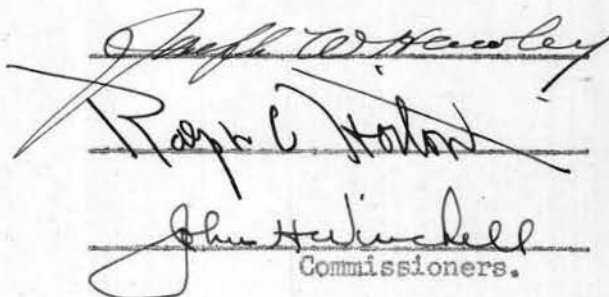 Joseph W. Hawley
Ralph C. Horton
John H Winchell
Commissioners.